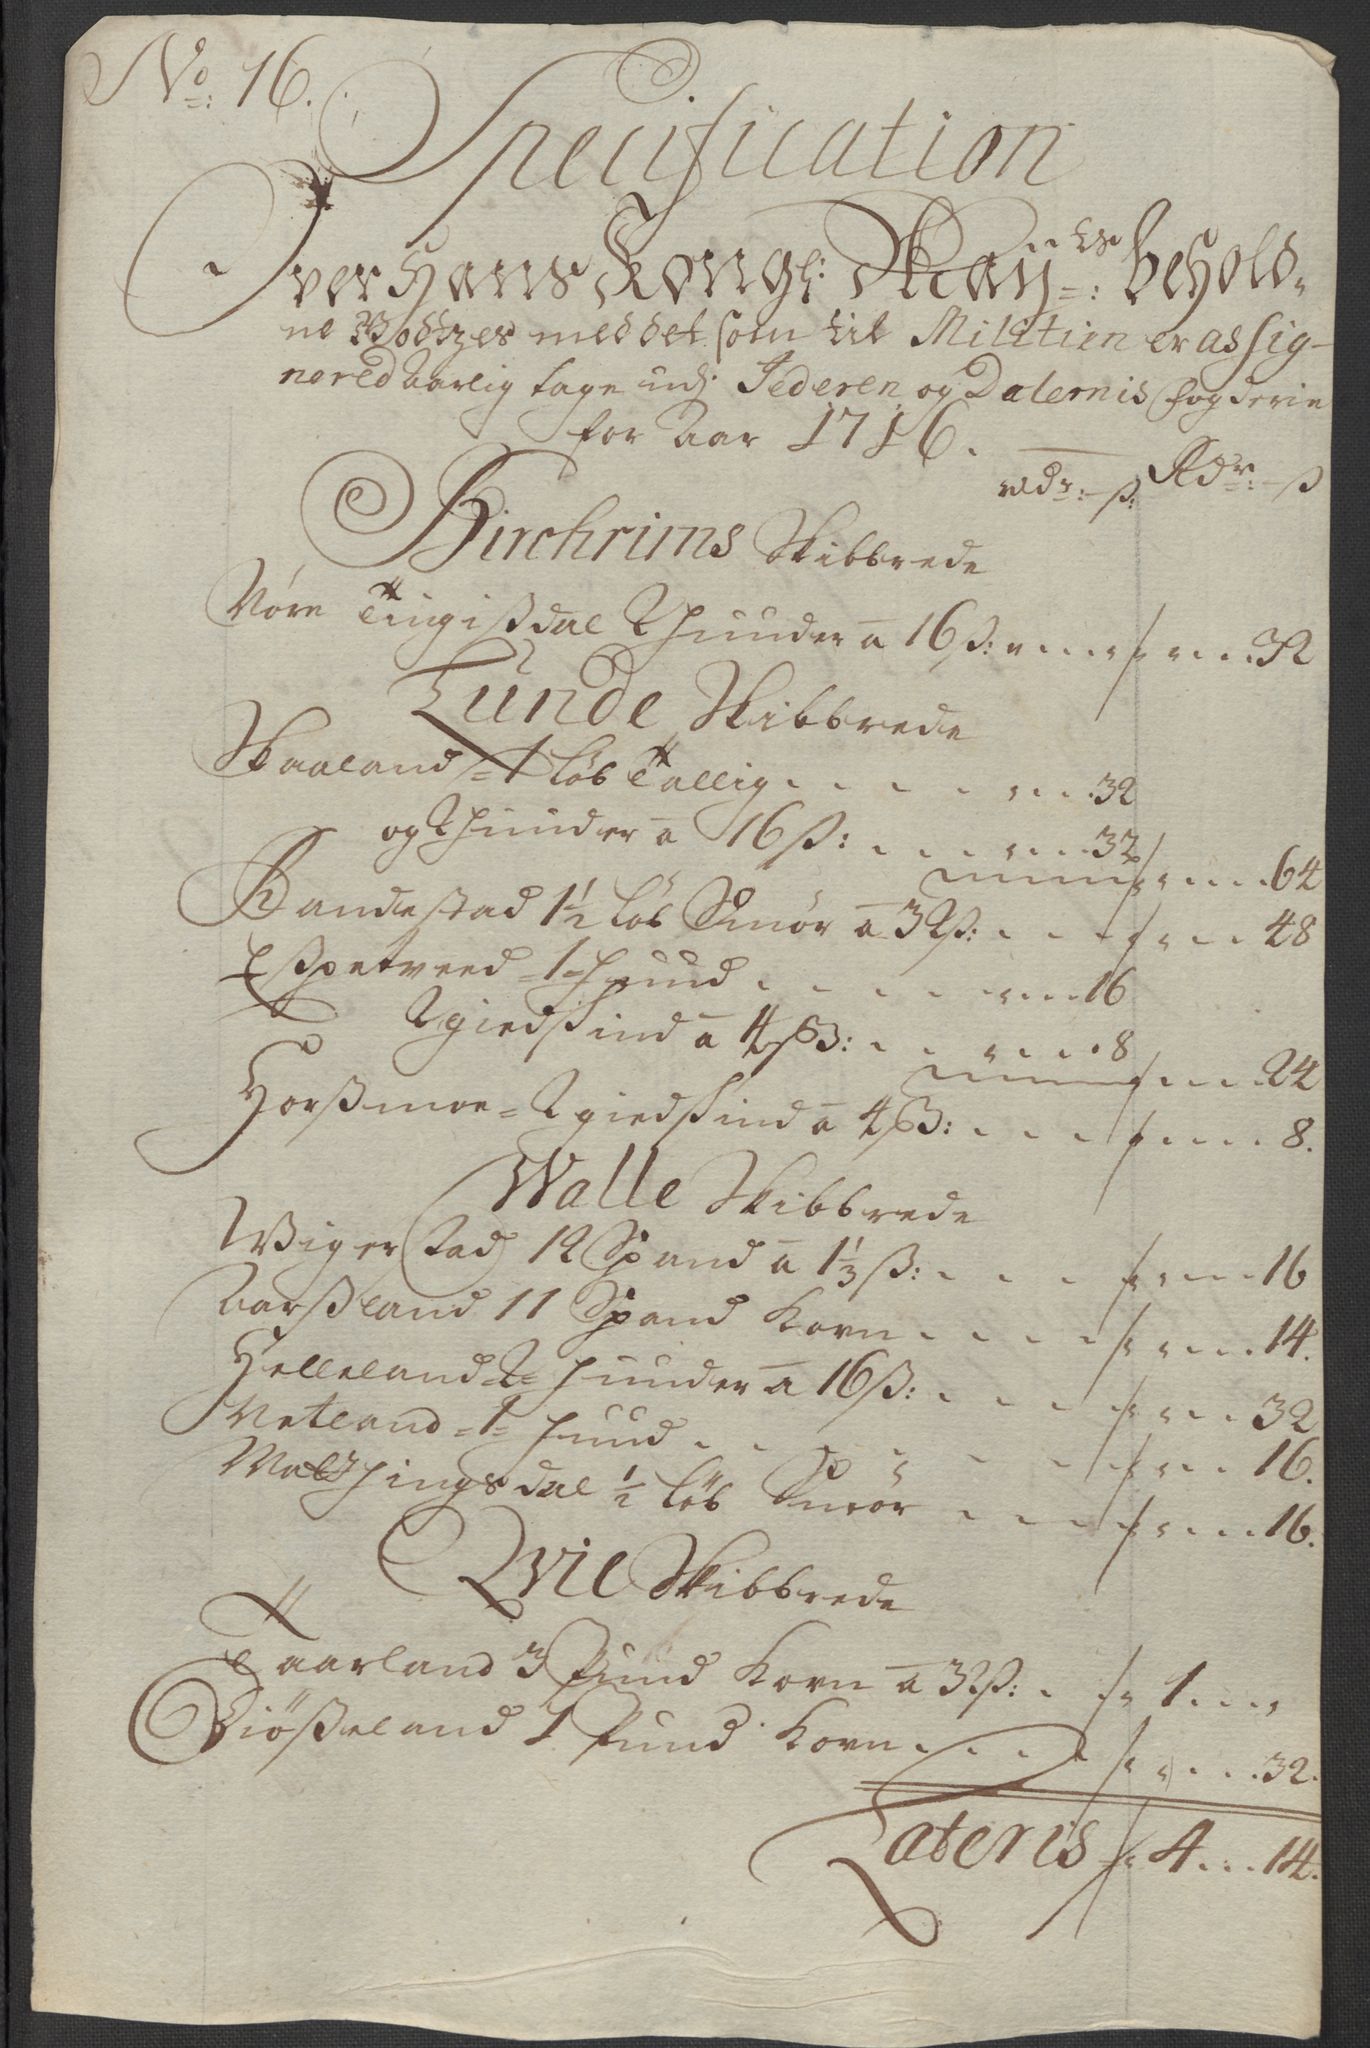 No: 16.
Specification
Over Hans Kongl: Maÿ:ts behold-
ne Godtzes med det som til Militien er assig-
nered Aarlig tage udj Jederen og Dalernis fogderie
for Aar 1716.
rdr: ß: Rdr: ß
Birchrims Skibbrede
Nöre Tingißdal 2 huuder a 16 ß: 32
Lunde Skibbrede
Skaaland 1 löb Tallig 32
og 2 huuder a 16 ß: 32
64
Bandestad 1½ löb Smör a 32 ß: 48
Eßpetveed 1 huud 16
2 giedskind a 4 ß: 8
24
Horßmoe 2 giedskind a 4 ß: 8.
Walle Skibbrede
Wigerstad 12 Spand a 1⅓ ß: 16
Aarßland 11 Spand Korn 14.
Helleland 2 huuder a 16 ß: 32
Netland 1 huud 16.
Molthingsdal ½ löb Smör 16.
Qvie Skibbrede
Taarland 3 Pund Korn a 32 ß: 1
Diößeland 1 Pund Korn 32.
Lateris 4 14.